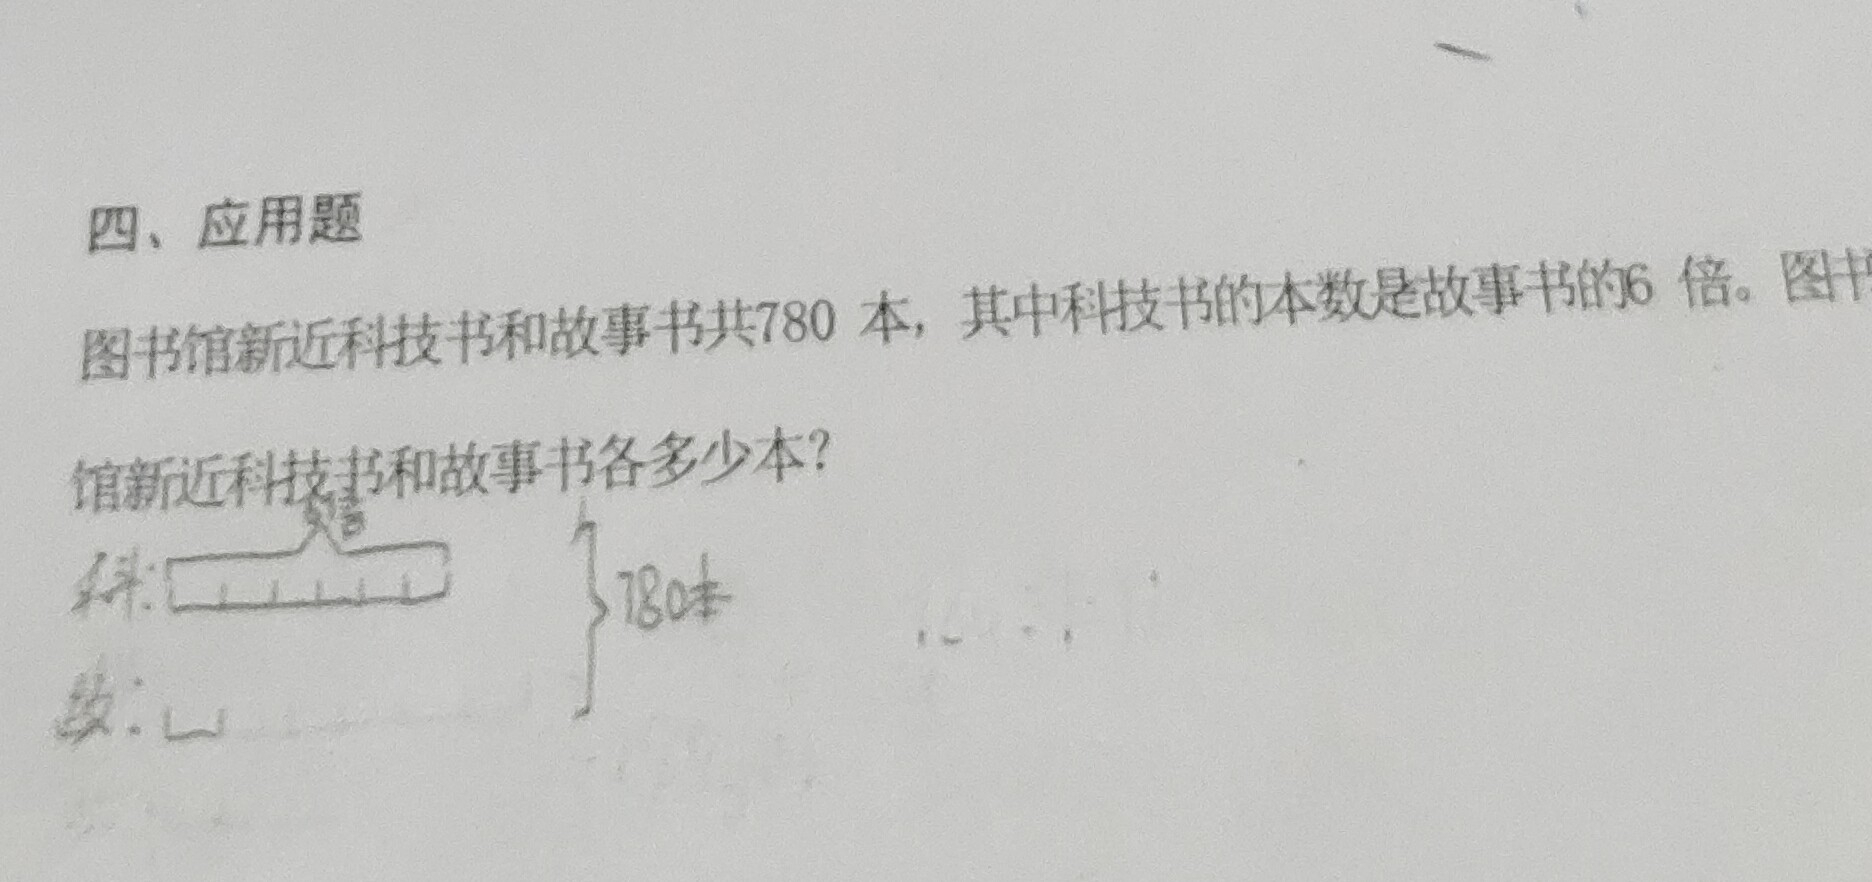 四、应用题
图书馆新近科技书和故事书共780 本，其中科技书的本数是故事书的6 倍。图书
馆新近科技书和故事书各多少本？
科：
780本
故：